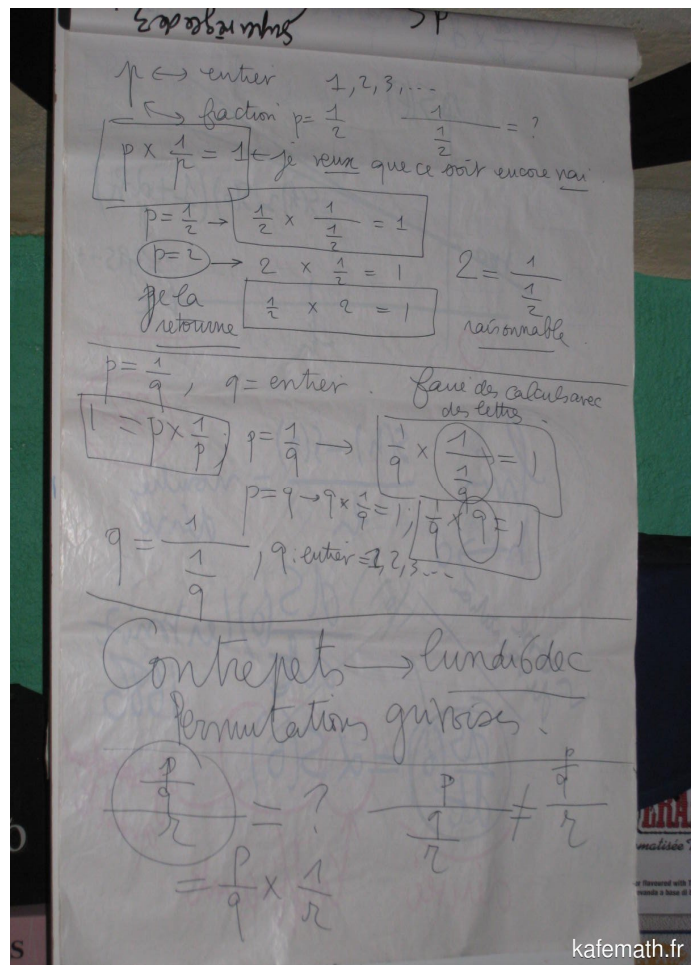 Super règle de 3
p ↔ entier 1, 2, 3, ...
↔ fraction p = 1/2 1/(1/2) = ?
p × 1/p = 1 ← je veux que ce soit encore vrai.
p = 1/2 → 1/2 × 1/(1/2) = 1
p = 2 → 2 × 1/2 = 1 2 = 1/(1/2)
je la retourne 1/2 × 2 = 1 raisonnable.
p = 1/q, q = entier. faire des calculs avec
des lettres.
1 = p × 1/p, p = 1/q → 1/q × 1/(1/q) = 1
p = q → q × 1/q = 1, 1/q × q = 1
q = 1/(1/q), q : entier = 1, 2, 3 ...
Contrepets → lundi 6 dec
Permutations grivoises.
(p/q)/r = ? p/(1/r) ≠ (p/q)/r
= p/q × 1/r
kafemath.fr